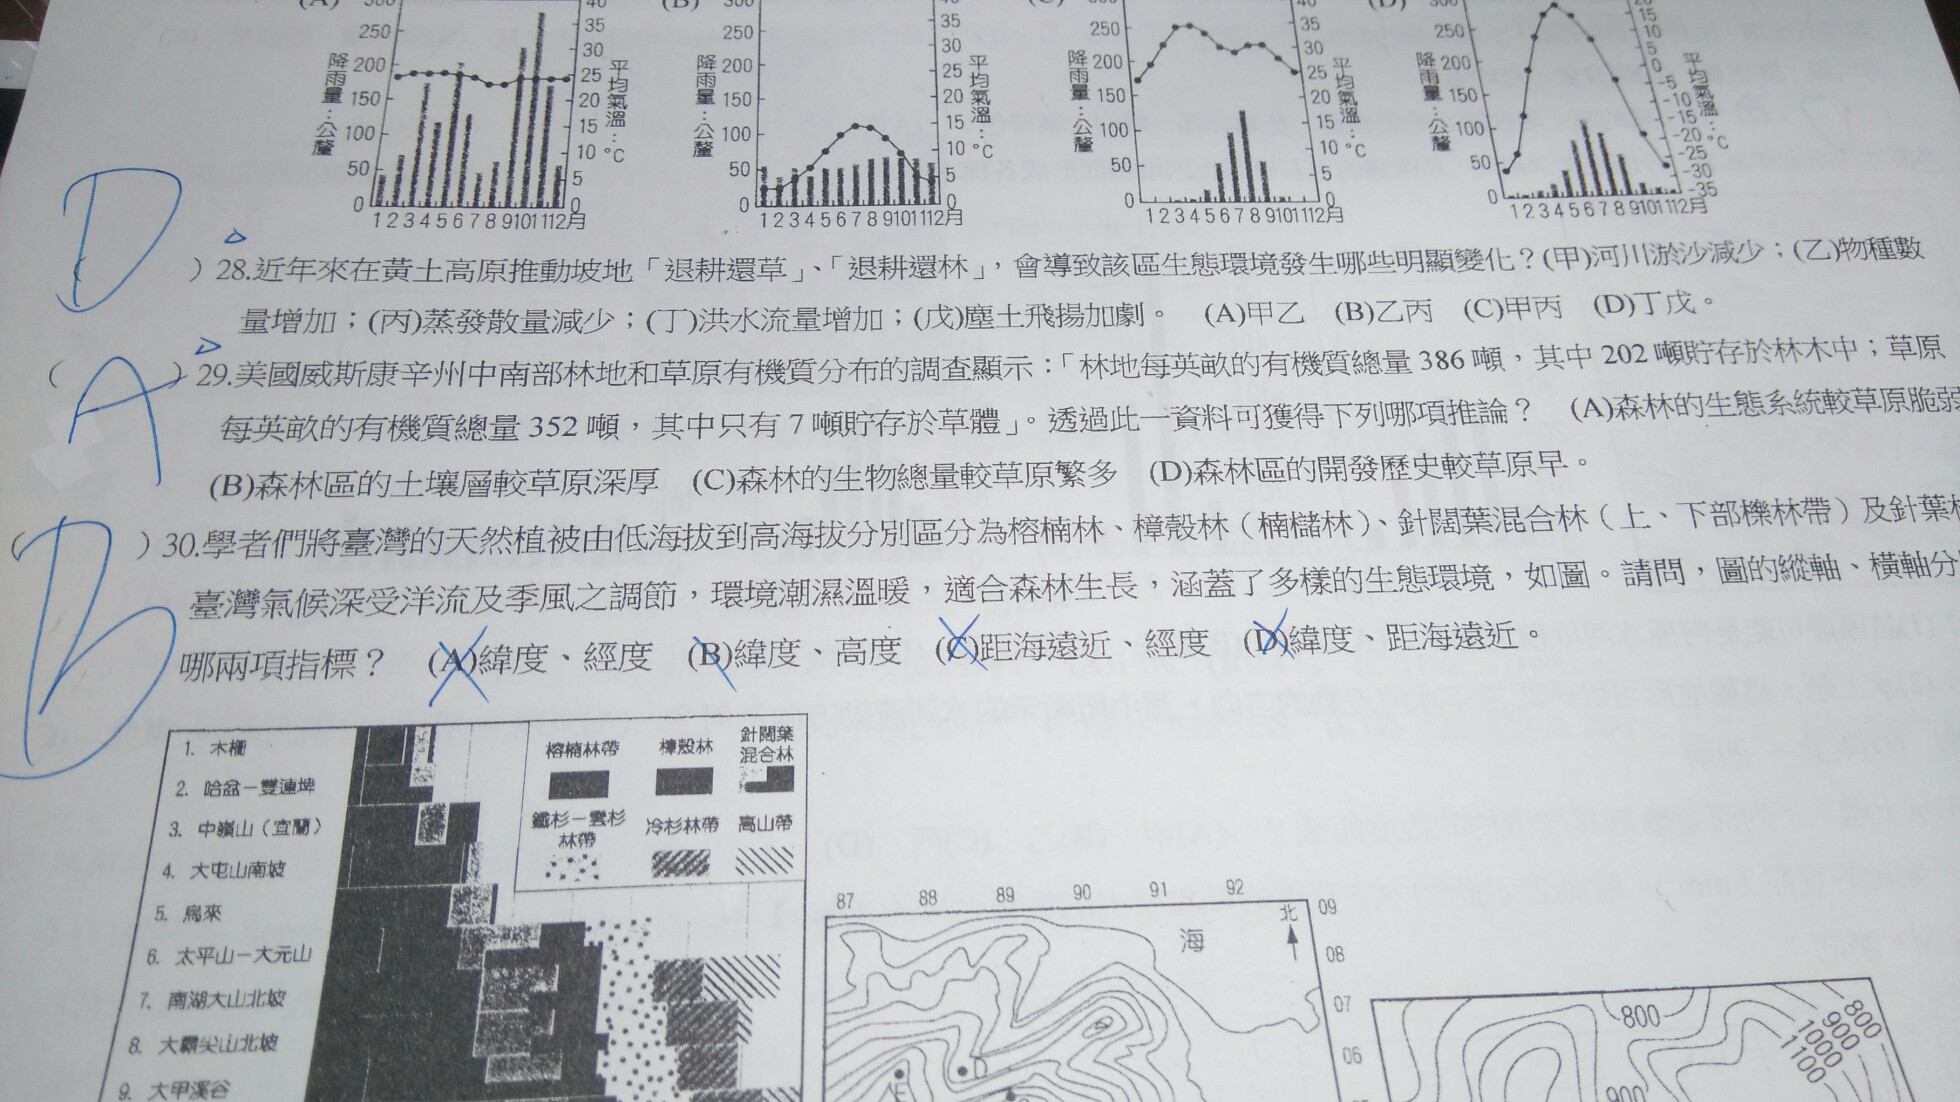 (A) 300 40 (B) 300 40 (C) 300 40 (D) 300 20
250 35 250 35 250 35 250 15
200 30 200 30 200 30 200 10
150 25 150 25 150 25 150 5
100 20 100 20 100 20 100 0
50 15 50 15 50 15 50 -5
0 10 0 10 0 10 0 -10
5 5 5 -15
0 0 0 -20
-25
-30
-35
降雨量:公釐 平均氣溫:°C 降雨量:公釐 平均氣溫:°C 降雨量:公釐 平均氣溫:°C 降雨量:公釐 平均氣溫:°C
1 2 3 4 5 6 7 8 9 10 11 12月 1 2 3 4 5 6 7 8 9 10 11 12月 1 2 3 4 5 6 7 8 9 10 11 12月 1 2 3 4 5 6 7 8 9 10 11 12月
D
( )28.近年來在黃土高原推動坡地「退耕還草」、「退耕還林」,會導致該區生態環境發生哪些明顯變化?(甲)河川淤沙減少;(乙)物種數
量增加;(丙)蒸發散量減少;(丁)洪水流量增加;(戊)塵土飛揚加劇。 (A)甲乙 (B)乙丙 (C)甲丙 (D)丁戊。
A
( )29.美國威斯康辛州中南部林地和草原有機質分布的調查顯示:「林地每英畝的有機質總量 386 噸,其中 202 噸貯存於林木中;草原
每英畝的有機質總量 352 噸,其中只有 7 噸貯存於草體」。透過此一資料可獲得下列哪項推論? (A)森林的生態系統較草原脆弱
(B)森林區的土壤層較草原深厚 (C)森林的生物總量較草原繁多 (D)森林區的開發歷史較草原早。
B
( )30.學者們將臺灣的天然植被由低海拔到高海拔分別區分為榕楠林、樟殼林(楠儲林)、針闊葉混合林(上、下部櫟林帶)及針葉林
臺灣氣候深受洋流及季風之調節,環境潮濕溫暖,適合森林生長,涵蓋了多樣的生態環境,如圖。請問,圖的縱軸、橫軸分
哪兩項指標? (A)緯度、經度 (B)緯度、高度 (C)距海遠近、經度 (D)緯度、距海遠近。
1. 木柵
2. 哈盆-雙連埤
3. 中嶺山(宜蘭)
4. 大屯山南坡
5. 烏來
6. 太平山-大元山
7. 南湖大山北坡
8. 大霸尖山北坡
9. 大甲溪谷
榕楠林帶 樟殼林 針闊葉混合林
鐵杉-雲杉林帶 冷杉林帶 高山帶
87 88 89 90 91 92
北 09
海
08
07
06
800 800
900
1000
1100
900